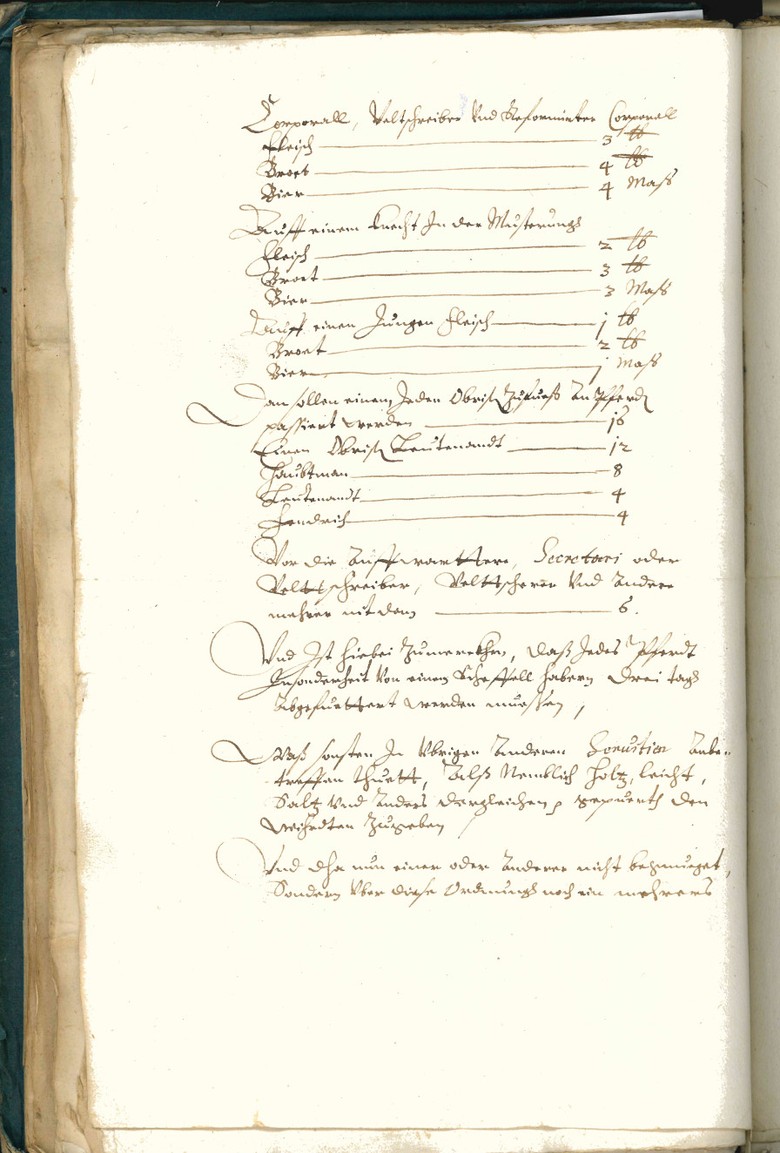 Corporall, Veltschreiber Vnd Reformirter Corporall
Fleisch 3 lb
Broet 4 lb
Bier 4 Maß
Auff einem Knecht In der Musterung
Fleisch 2 lb
Broet 3 lb
Bier 3 Maß
Auff einen Jungen Fleisch j lb
Broet 2 lb
Bier j Maß
Dan sollen einem Jeden Obrist zu fueß An Pferdt
passiert werden 16
Einen Obrist Leutenandt 12
Haubtman 8
Leutenandt 4
Fendrich 4
Vor die Auffwartter, Secretari oder
Veltschreiber, Veltscherer Vnd Andere
mehrer nit dan 6.
Vnd Ist hiebei zumerckhen, daß Jedes Pferdt
Insonderheit Von einem Scheffell habern drei tag
Abgefuettert werden muessen,
Waß sonsten In Vbrigen Anderen Seruitien Anbe-
treffen thuett, Alß Nemblich Holtz, leicht,
Saltz Vnd Anders dergleichen, den
zugeben
Vnd dha nun einer oder Anderer nicht begnueget,
Sondern Vber diese Ordnung noch ein mehrers